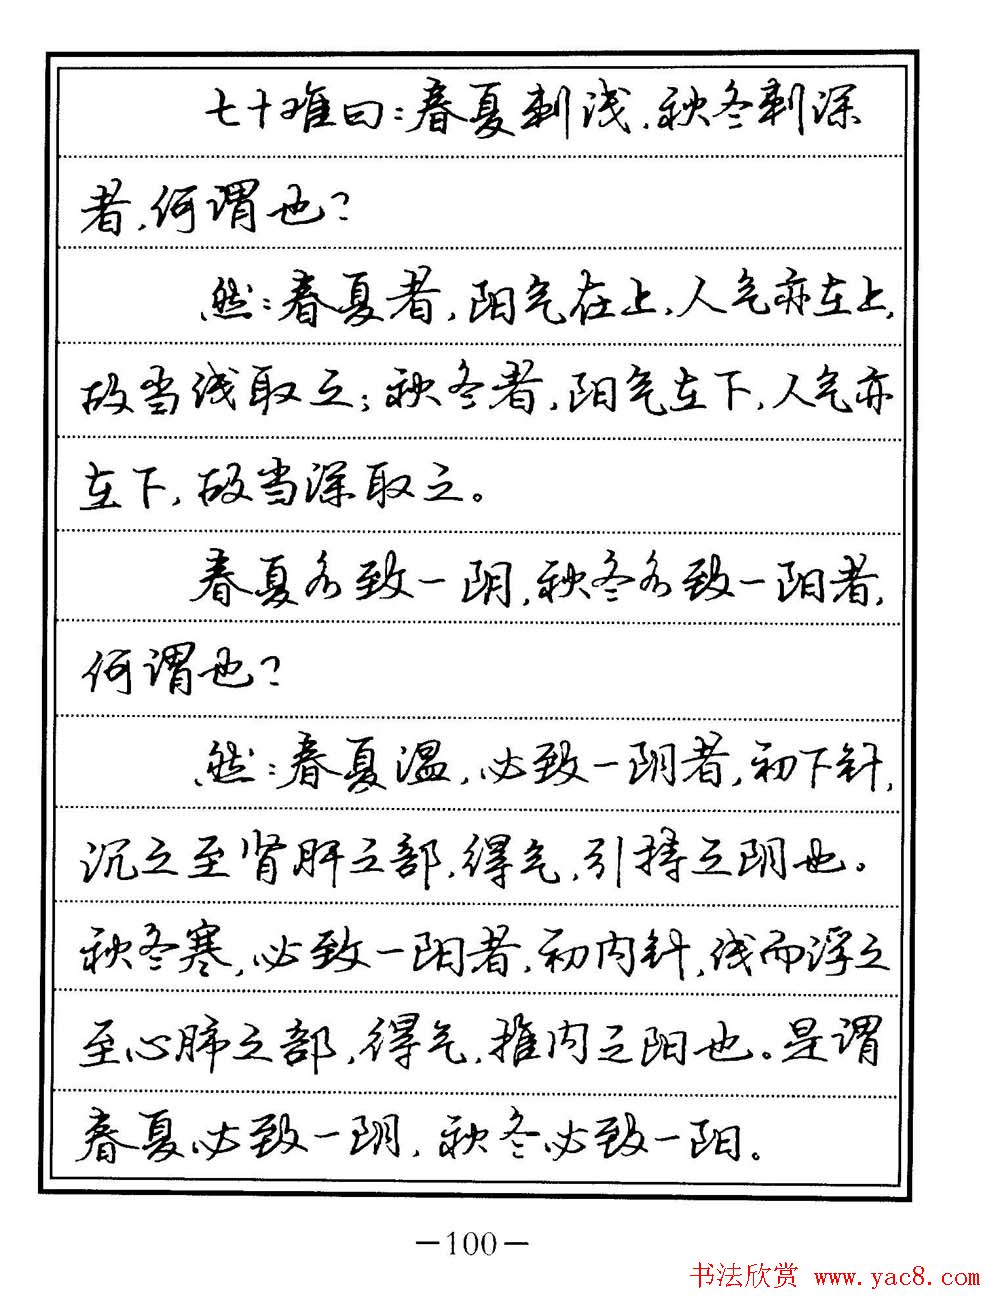 七十难曰：春夏刺浅，秋冬刺深
者，何谓也？
然：春夏者，阳气在上，人气亦在上，
故当浅取之；秋冬者，阳气在下，人气亦
在下，故当深取之。
春夏各致一阴，秋冬各致一阳者，
何谓也？
然：春夏温，必致一阴者，初下针，
沉之至肾肝之部，得气，引持之阴也。
秋冬寒，必致一阳者，初内针，浅而浮之
至心肺之部，得气，推内之阳也。是谓
春夏必致一阴，秋冬必致一阳。
—100—
书法欣赏 www.yac8.com